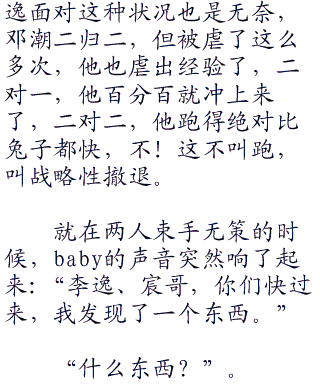 逸面对这种状况也是无奈，
邓潮二归二，但被虐了这么
多次，他也虐出经验了，二
对一，他百分百就冲上来
了，二对二，他跑得绝对比
兔子都快，不！这不叫跑，
叫战略性撤退。
就在两人束手无策的时
候，baby的声音突然响了起
来：“李逸、宸哥，你们快过
来，我发现了一个东西。”
“什么东西？”。